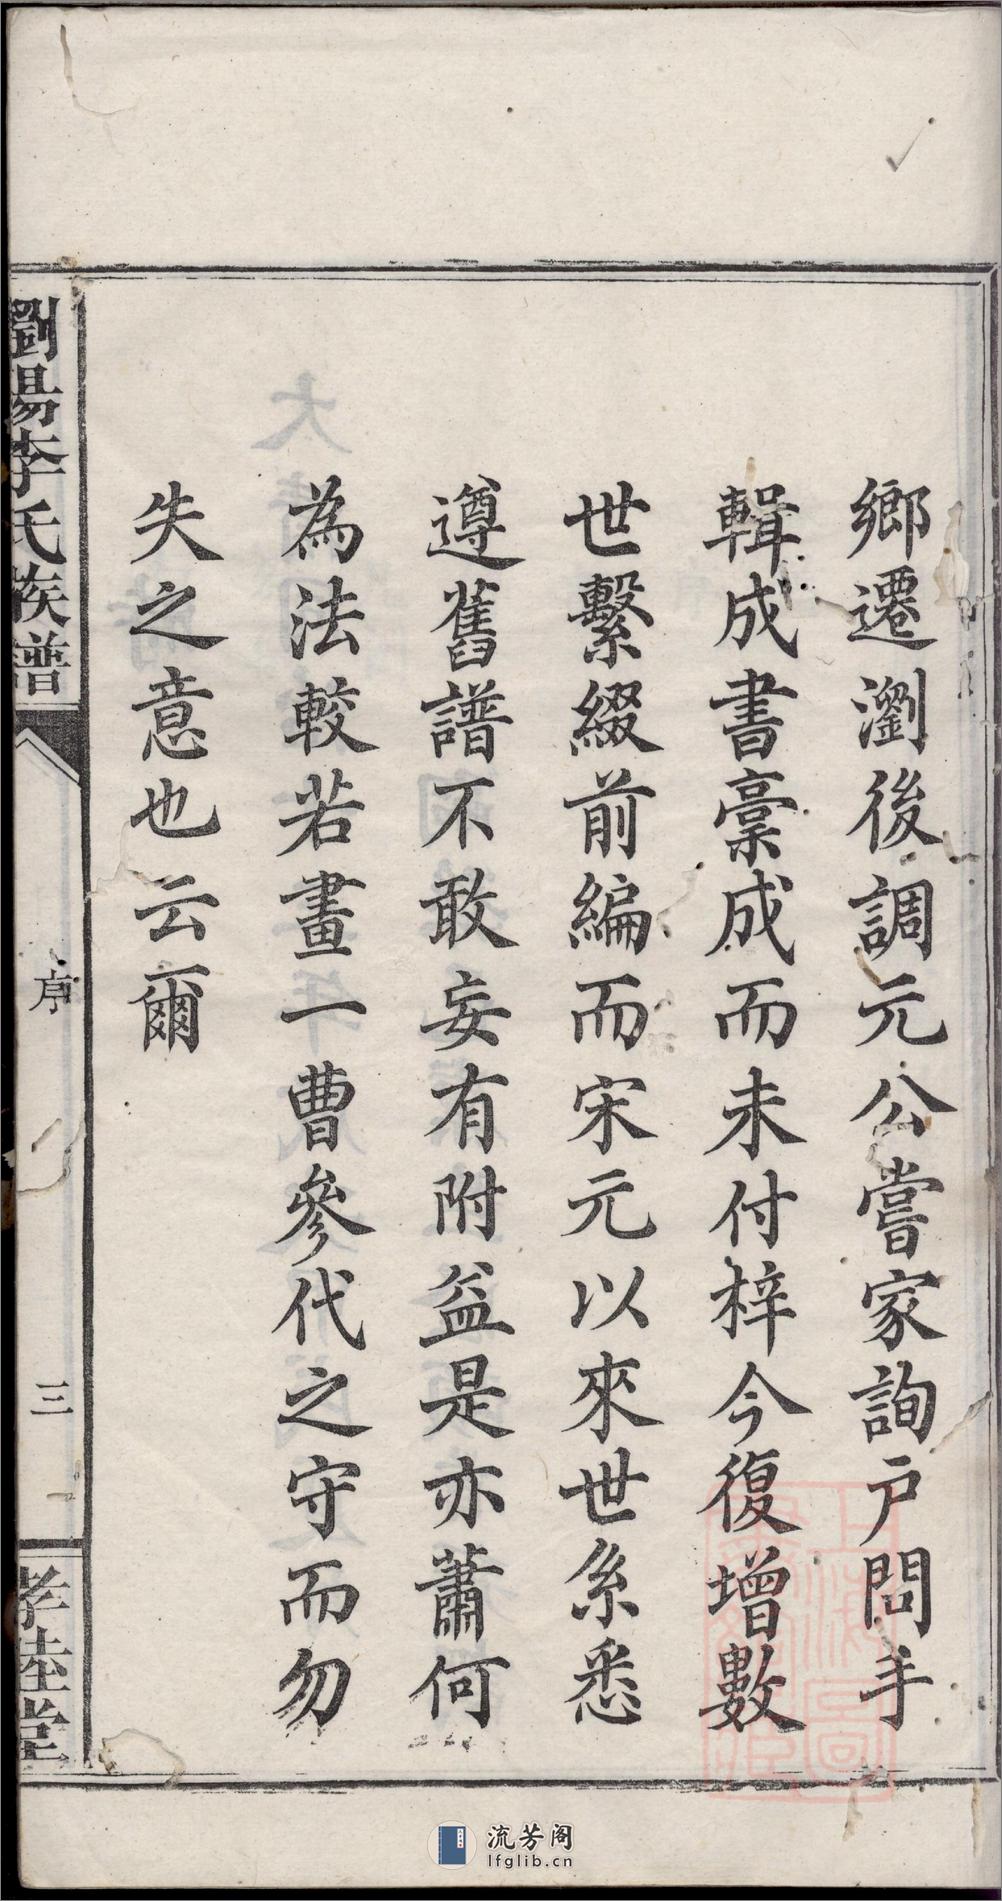 鄉遷瀏後調元公嘗家詢户問手
輯成書稾成而未付梓今復增數
世繫綴前編而宋元以來世系悉
遵舊譜不敢妄有附益是亦蕭何
為法較若畫一曹參代之守而勿
失之意也云爾
瀏陽李氏族譜
序
三
孝睦堂
流芳阁
lfglib.cn